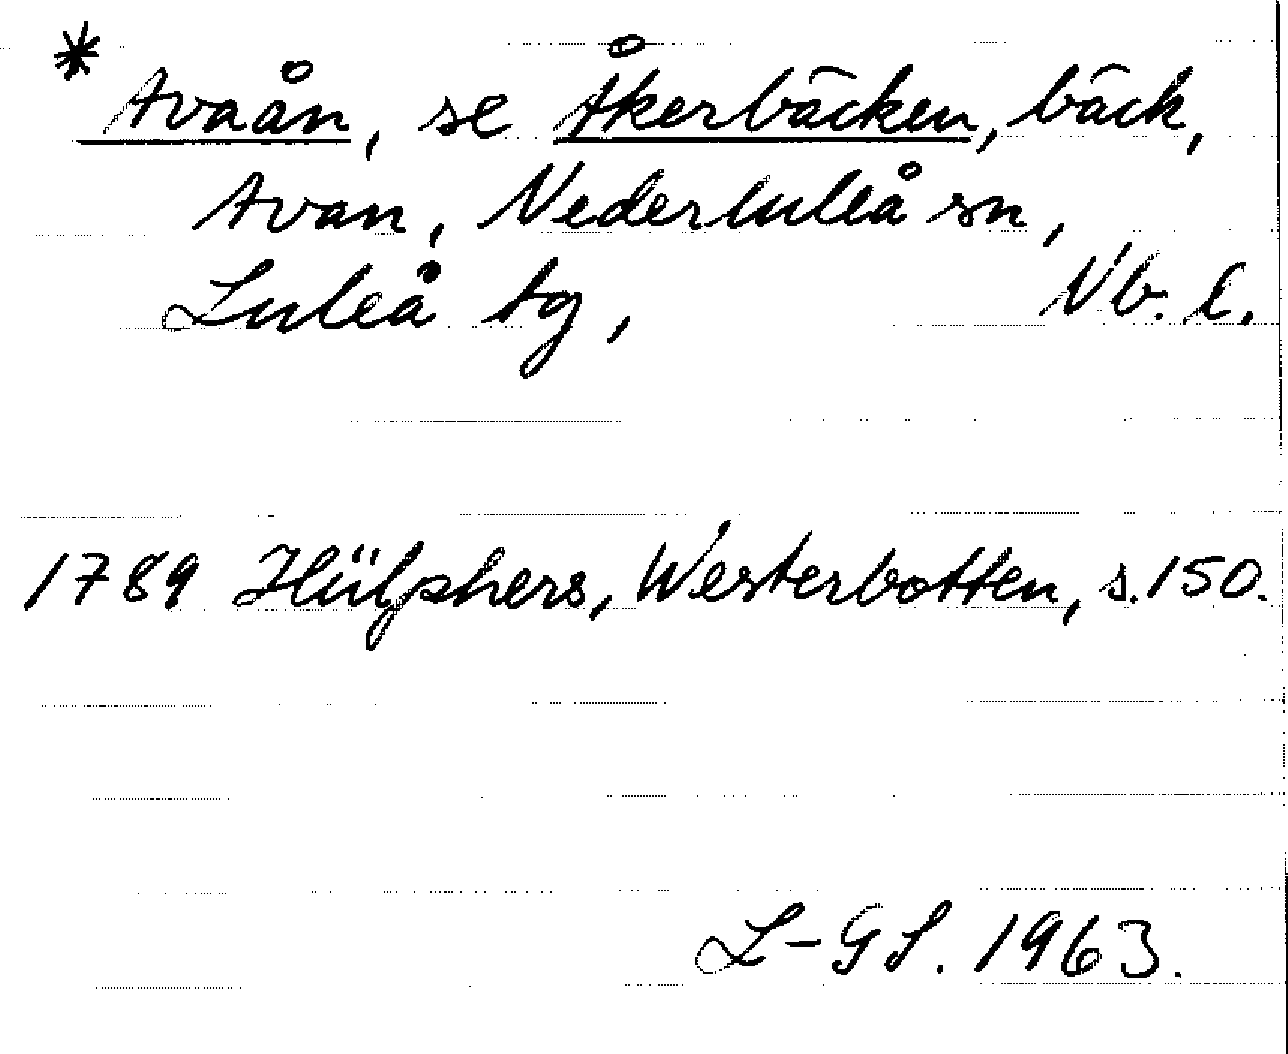 * Avaån, se Åkerbäcken, bäck,
Avan, Nederluleå sn,
Luleå tg, Nb. l.
1789 Hülphers, Westerbotten, s. 150.
L-GS. 1963.